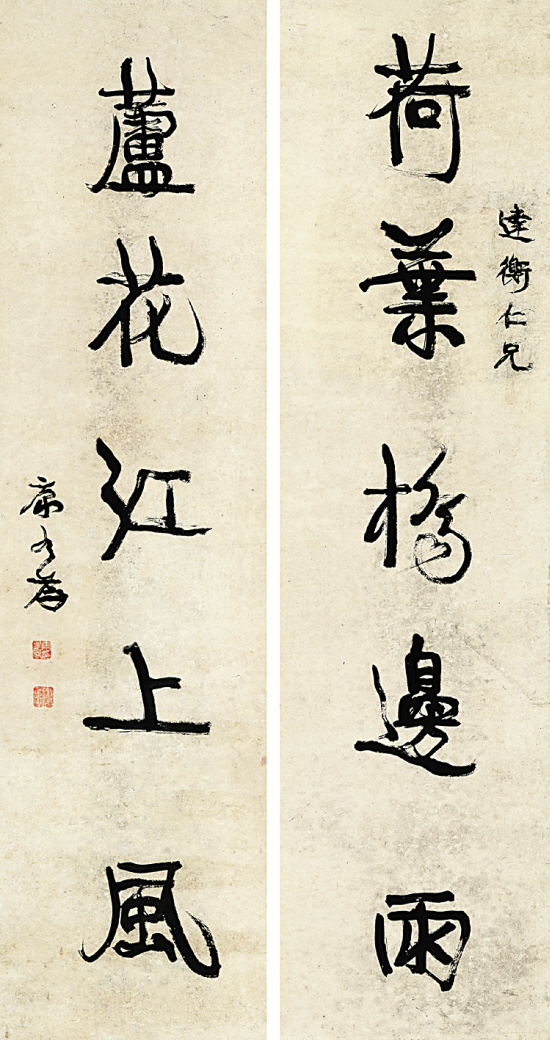 達衡仁兄
荷葉橋邊雨
蘆花江上風
康有為